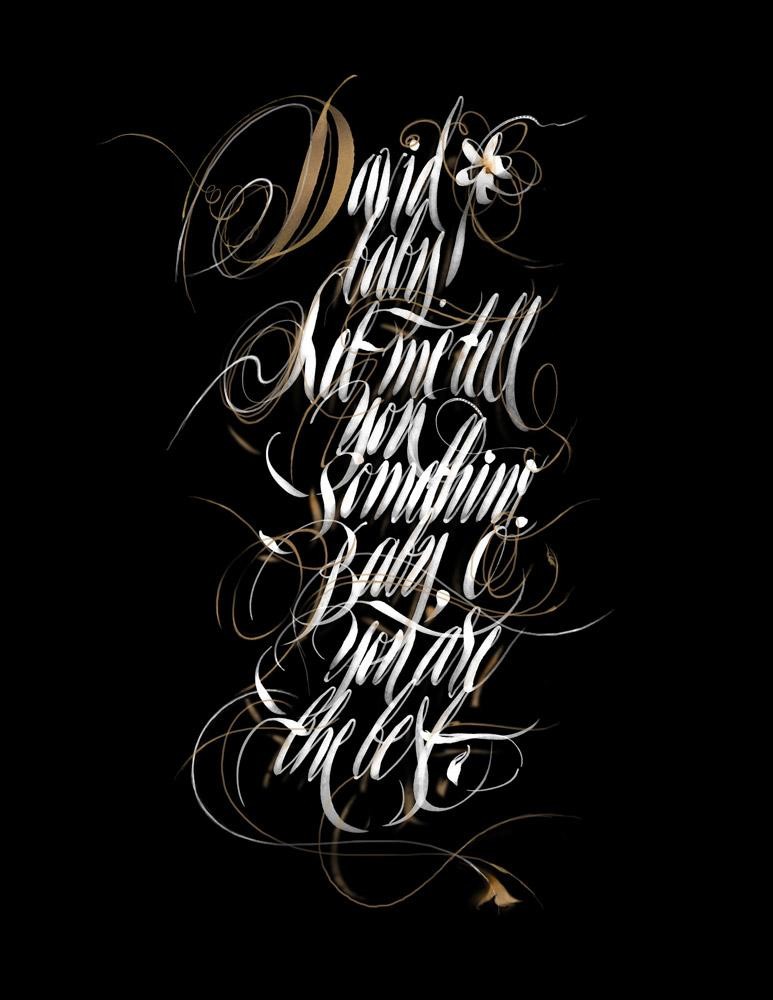 David
baby!
Let me tell
you
Something.
Baby,
you are
the best.